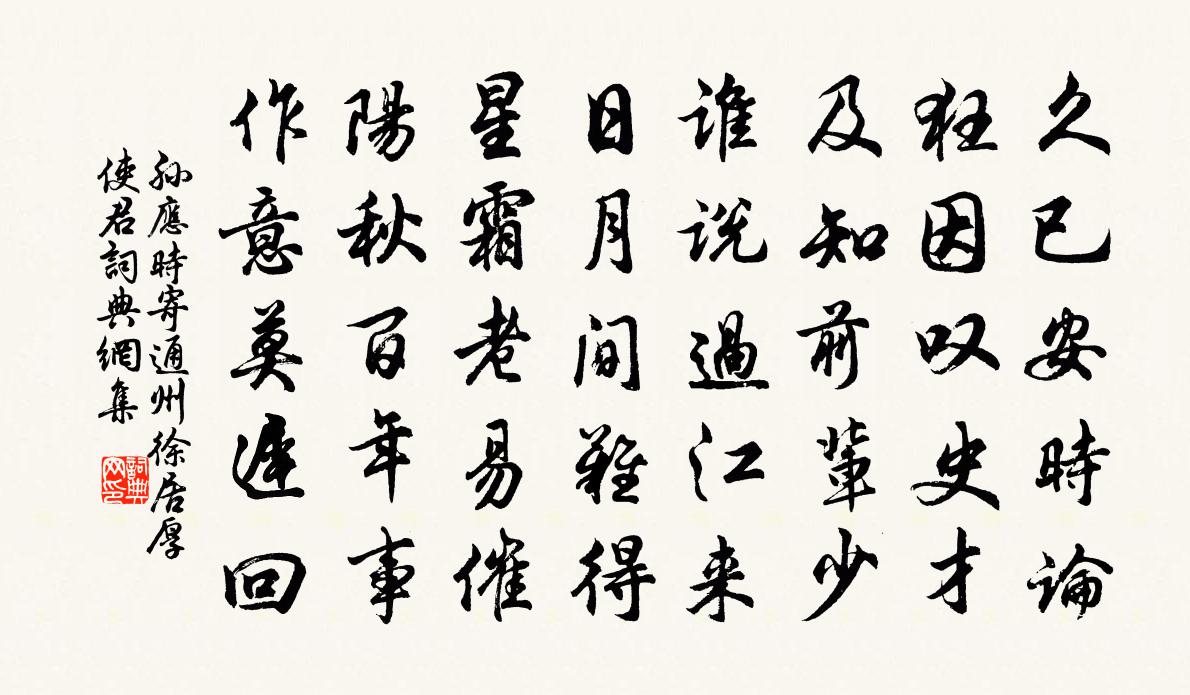 久已安時論
狂因叹史才
及知前輩少
谁说過江来
日月间難得
星霜老易催
陽秋百年事
作意莫遲回
孙應時寄通州徐居厚
使君詞典網集
詞典网印